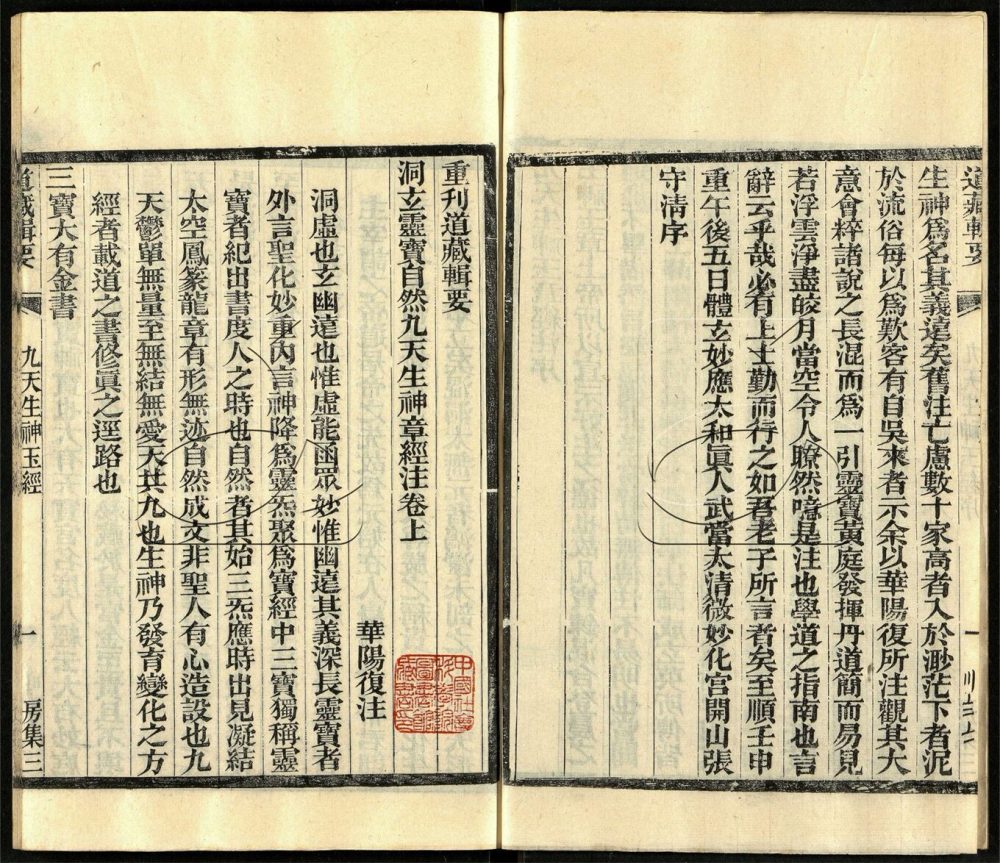 道藏輯要
生神爲名其義遠矣舊注亡慮數十家高者入於渺茫下者況
於流俗每以爲歎客有自吳來者示余以華陽復所注觀其大
意會粹諸說之長混而爲一引靈寶黃庭發揮丹道簡而易見
若浮雲淨盡皎月當空令人瞭然噫是注也學道之指南也言
辭云乎哉必有上士勤而行之如吾老子所言者矣至順壬申
重午後五日體玄妙應太和眞人武當太清微妙化宮開山張
守清序
重刊道藏輯要
洞玄靈寶自然九天生神章經注卷上
華陽復注
洞虛也玄幽遠也惟虛能函眾妙惟幽遠其義深長靈寶者
外言聖化妙重內言神降爲靈炁聚爲寶經中三寶獨稱靈
寶者紀出書度人之時也自然者其始三炁應時出見凝結
太空鳳篆龍章有形無迹自然成文非聖人有心造設也九
天鬱單無量至無結無愛天其九也生神乃發育變化之方
經者載道之書修眞之逕路也
三寶大有金書
道藏輯要
九天生神玉經
一
房集三